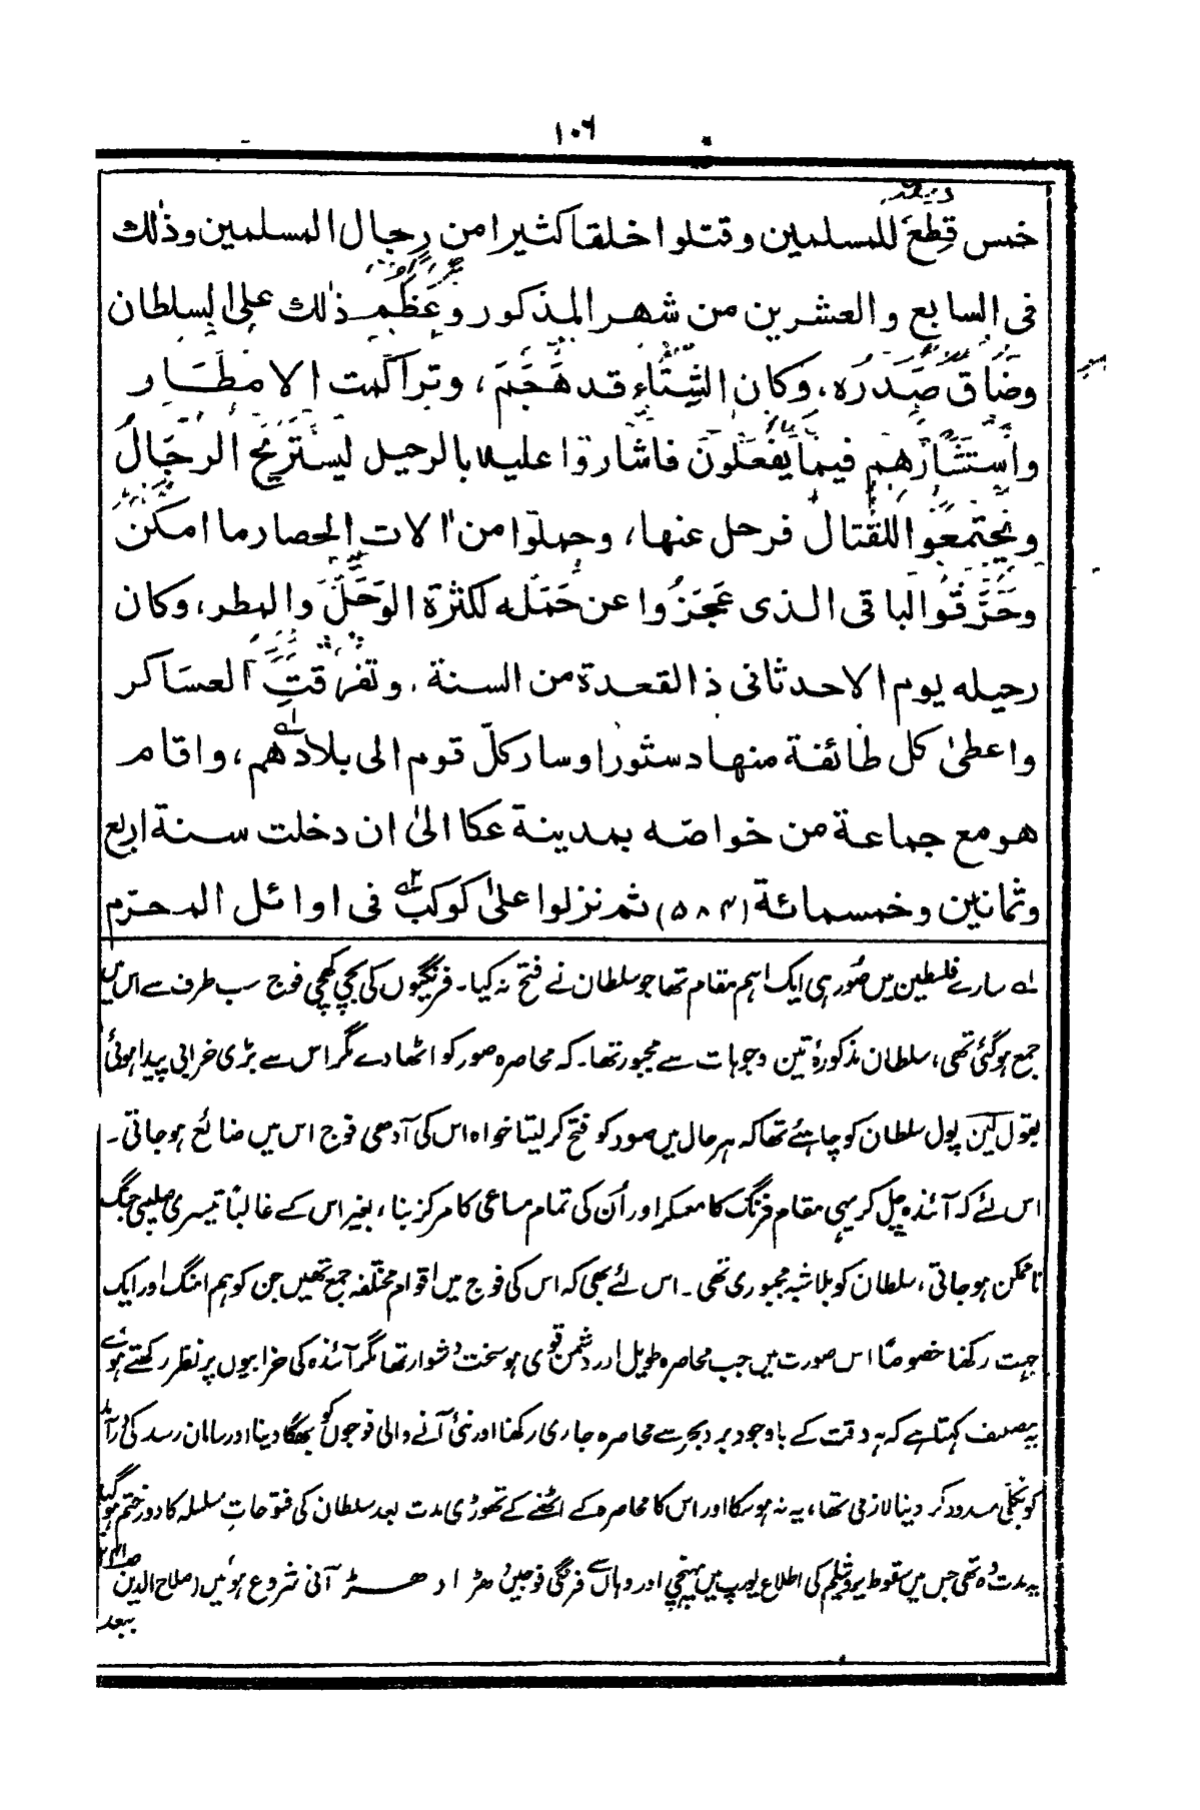 ١٠٦
خمس قِطَع للمسلمين وقتلوا خلقا كثيرا من رجال المسلمين وذٰلك
فى السابع والعشرين من شهر المذكور وعَظُمَ ذٰلك على السلطان
وضاق صَدرُه، وكان الشِّتَاء قد هَجَمَ، وتراكمت الامطَار
واستَشَارَهم فيما يَفعَلُونَ فاشاروا عليه بالرحيل ليستَريحَ الرجَالُ
ويجتمعوا للقتال فرحل عنها، وحملوا من اٰلات الحصار ما امكن
وحَرَّقُوا الباقى الذى عَجَزُوا عن حَمَله لكثرة الوَحَلَ والمطر، وكان
رحيله يوم الاحد ثانى ذ القعدة من السنة، وتفرقتِ العساكر
واعطىٰ كل طائفة منها دستورا وسار كلّ قوم الى بلادهم، واقام
هو مع جماعة من خواصّه بمدينة عكا الىٰ ان دخلت سنة اربع
وثمانين وخمسمائة (۵۸۴) ثم نزلوا علىٰ كوكب فى اوائل المحرّم
لہ سارے فلسطین میں صُور ہی ایک اہم مقام تھا جو سلطان نے فتح نہ کیا۔ فرنگیوں کی بچی کھچی فوج سب طرف سے اس میں
جمع ہوگئی تھی، سلطان مذکورۂ تین وجوہات سے مجبور تھا۔ کہ محاصرہ صور کو اٹھا دے مگر اس سے بڑی خرابی پیدا ہوئی
بقول لین پول سلطان کو چاہئے تھا کہ ہر حال میں صور کو فتح کر لیتا خواہ اس کی آدھی فوج اس میں ضائع ہو جاتی۔
اس لئے کہ آئندہ چل کر یہی مقام فرنگ کا معسکر اور اُن کی تمام مساعی کا مرکز بنا، بغیر اس کے غالباً تیسری صلیبی جنگ
ناممکن ہو جاتی، سلطان کو بلا شبہ مجبوری تھی۔ اس لئے بھی کہ اس کی فوج میں اقوام مختلفہ جمع تھیں جن کو ہم آہنگ اور ایک
جہت رکھنا خصوصًا اس صورت میں جب محاصرہ طویل اور دشمن قوی ہو سخت دشوار تھا مگر آئندہ کی خرابیوں پر نظر رکھتے ہوئے
یہ صنیف کہتا ہے کہ ہر دقت کے باوجود محاصرہ جاری رکھنا اور نئی آنے والی فوجوں کو بھگا دینا اور سامان رسد کی آمد
کو بکلّی مسدود کر دینا لازمی تھا، یہ نہ ہو سکا اور اس کا محاصرہ کے اٹھنے کے تھوڑی مدت بعد سلطان کی فتوحاتِ مسلسل کا دور ختم ہو گیا
یہ مدت وہ تھی جس میں سقوط یروشلم کی اطلاع یورپ میں پہنچی اور وہاں سے فرنگی فوجیں دھڑا دھڑ آنی شروع ہوئیں (صلاح الدین